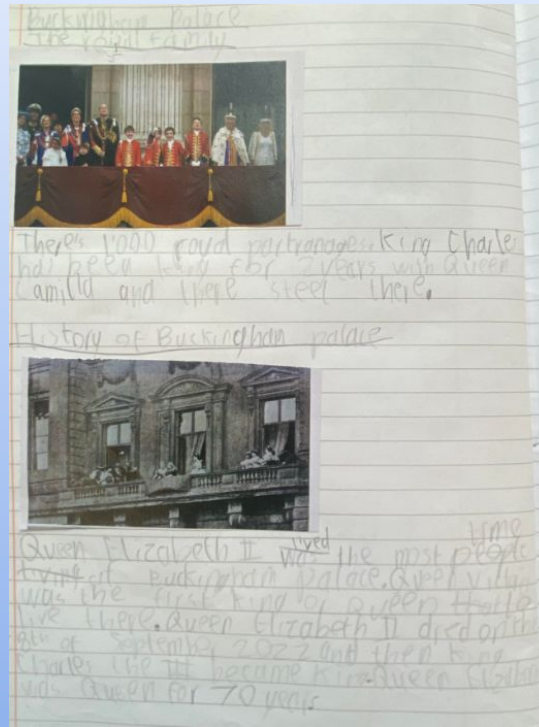 Buckingham Palace
The royal family
There's 1'000 royal partranages. King Charles
has been king for 2 years with Queen
Camilla and there steel there.
History of Buckinghan palace
Queen Elizabeth II lived was the most people time
living at Buckingham Palace. Queen
was the first king or Queen to
live there. Queen Elizabeth II died on the
8th of September 2022 and then King
Charles the III became King. Queen Elizabeth
was Queen for 70 years.